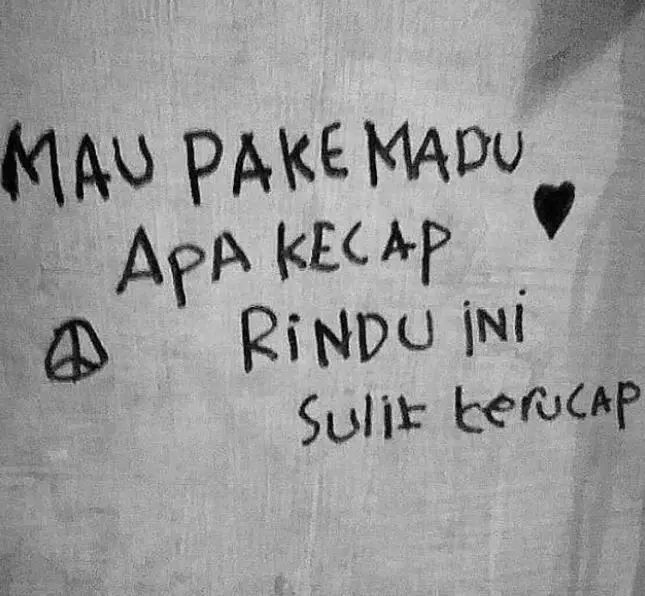 MAU PAKE MADU
APA KECAP
RiNDU iNi
Sulit terUCAP